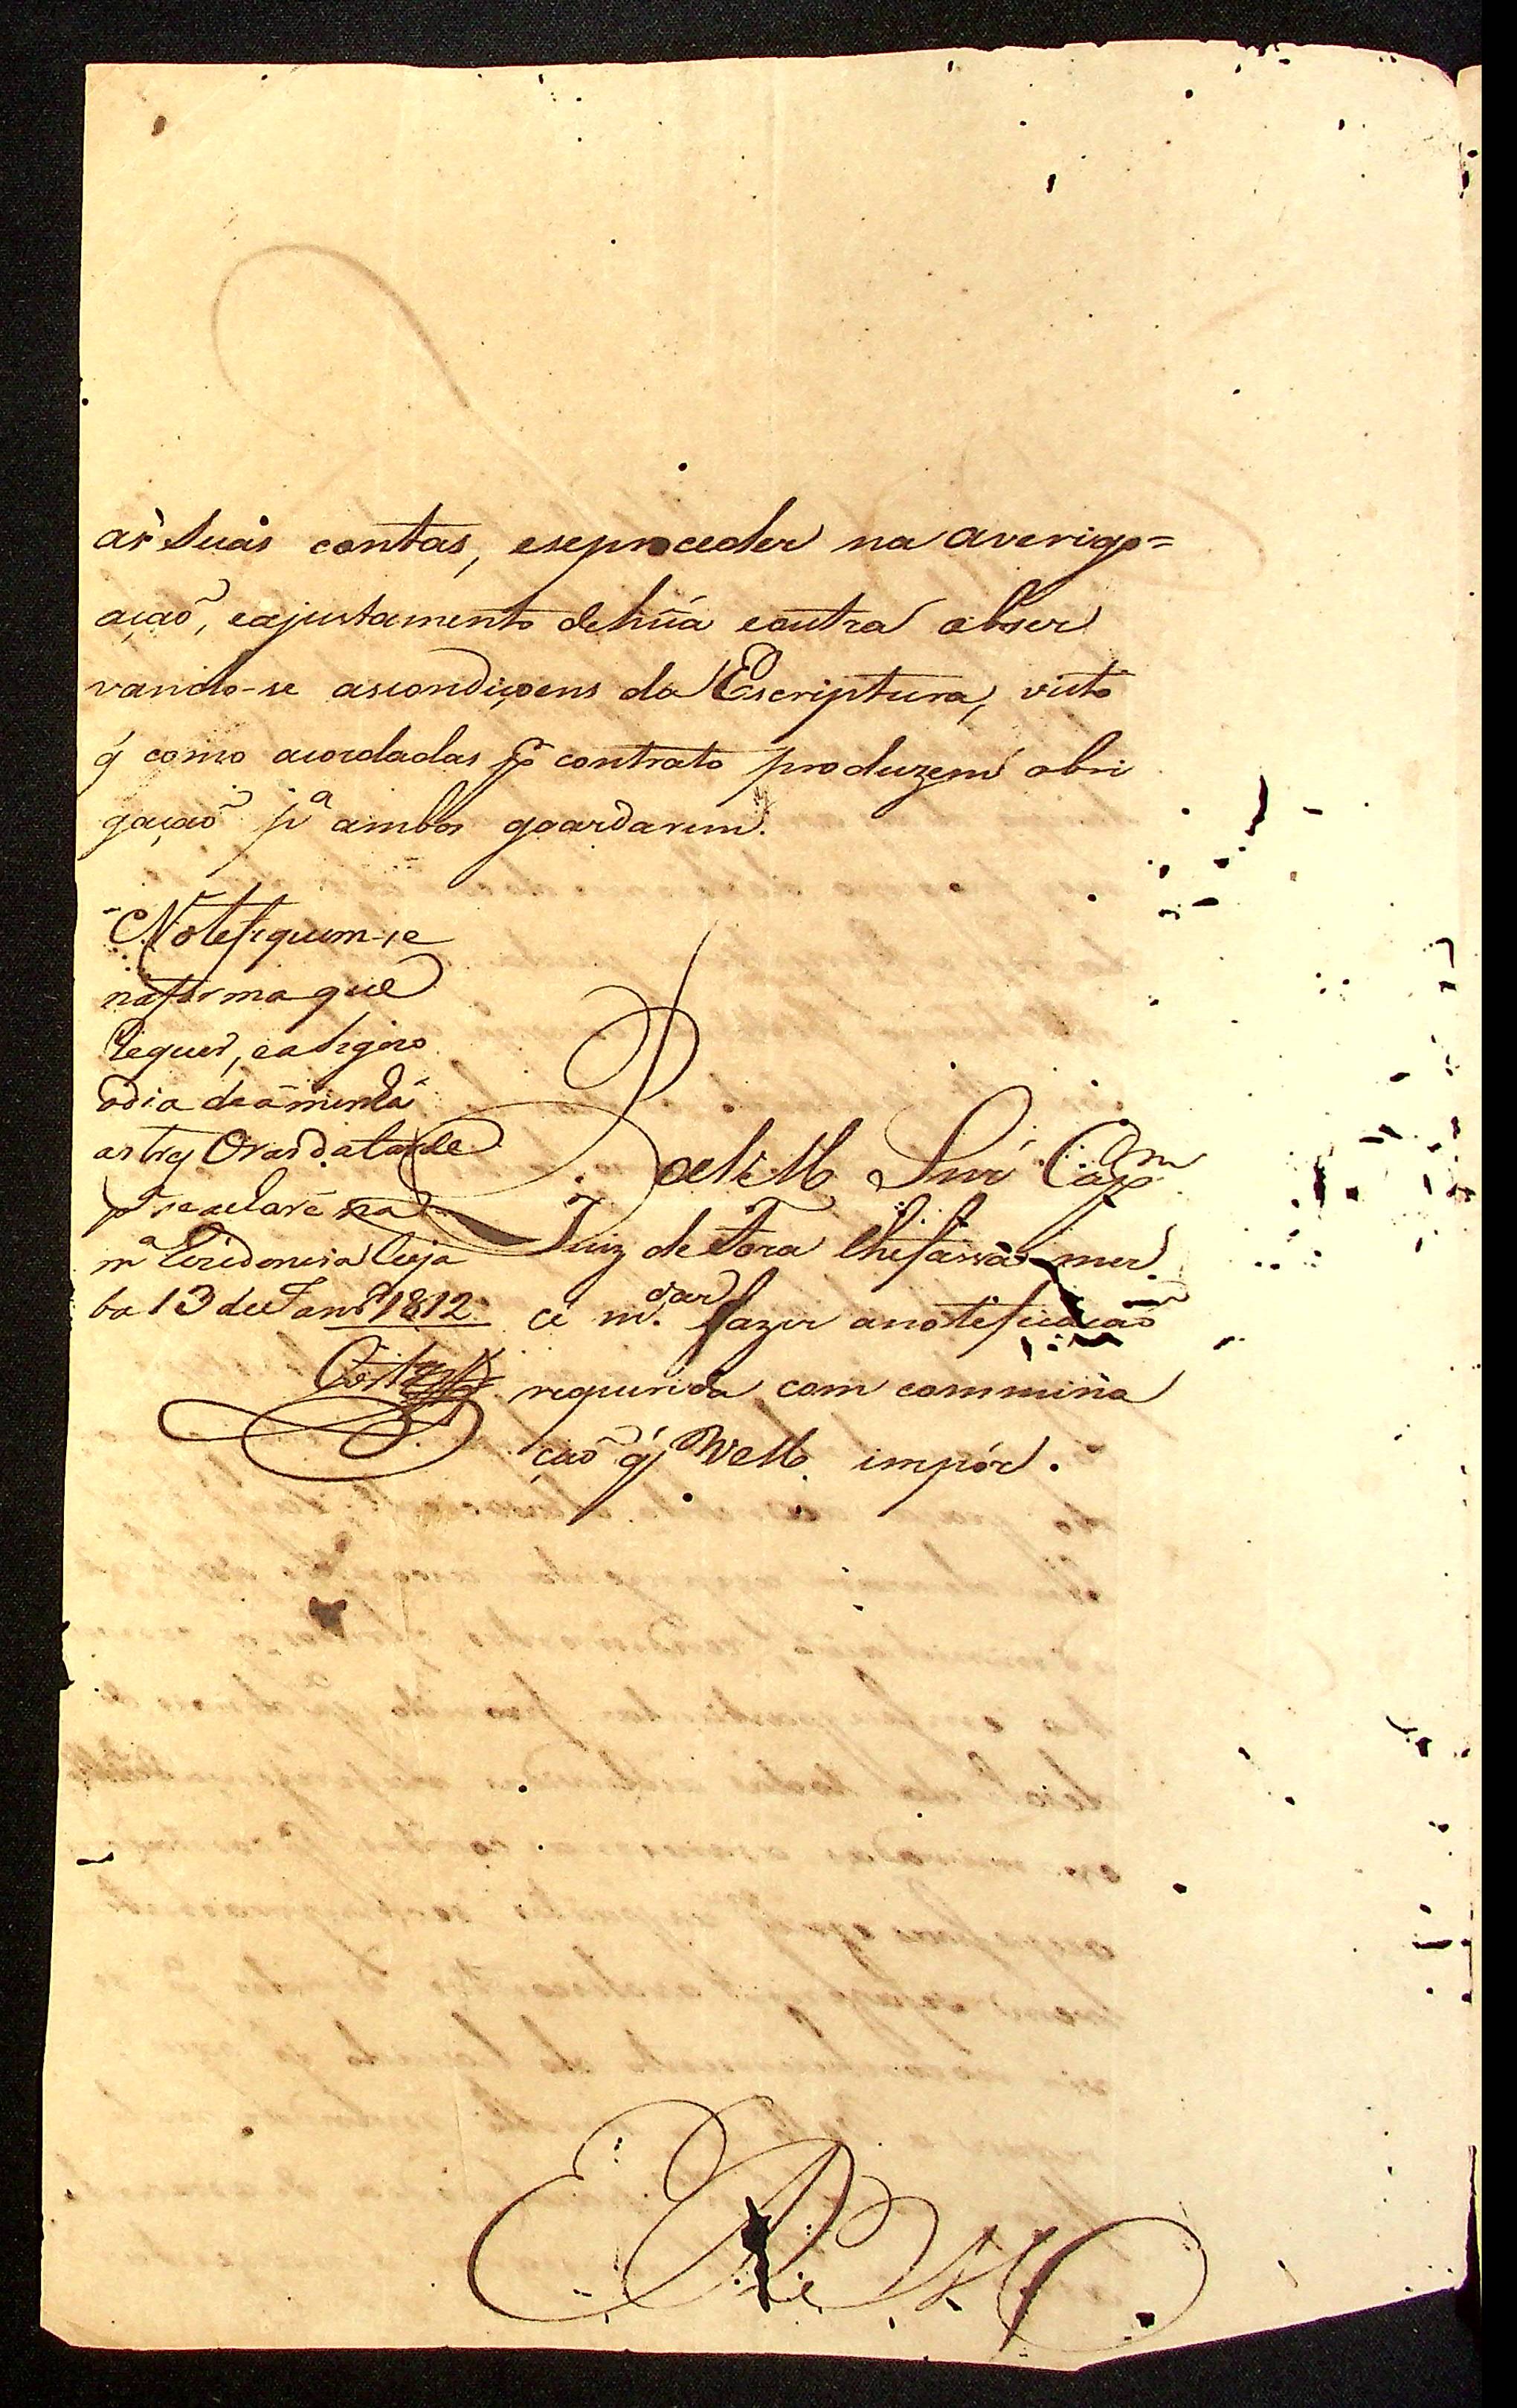 as Suas contas, eseproceder na averigo=
açaõ, eajustamento dehũa eoutra obser
vando-se ascondiçoens da Escriptura, visto
q̃ como acordadas p̃ contrato produzem obri
gaçaõ pª ambos goardarem.
Notefiquem-se
naforma que
Requer, eaSigno
odia deamenhã
astrez Oras datarde
pª seaclarẽ na
mª Rezidencia Cuja
ba 13 de Janrº 1812
Costa
P. aVM Snr̃ Capm
Juiz deFora lhefassa mer
ce mdar fazer anoteficaçaõ
requerida com commina
çaõ q̃ VM impór.
E R M